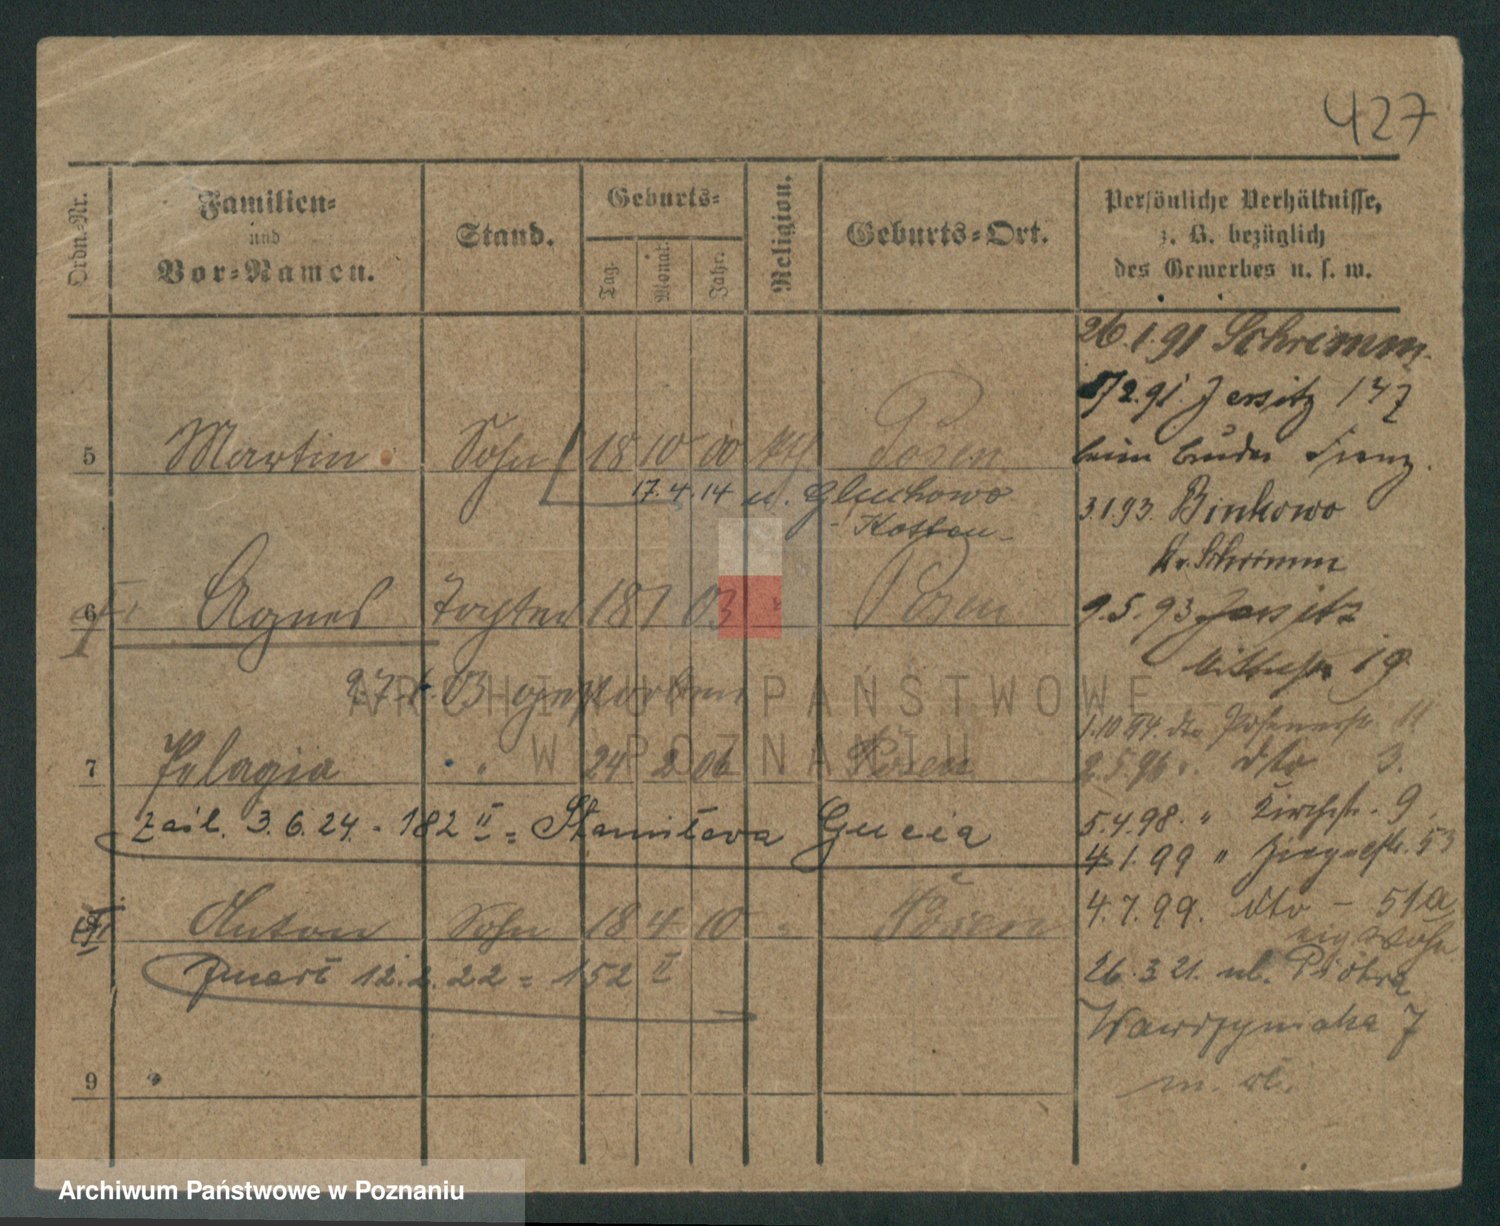 427
Ordn.-Nr.
Familien-
und
Vor-Namen.
Stand.
Geburts-
Tag.
Monat.
Jahr.
Religion.
Geburts-Ort.
Persönliche Verhältnisse,
z. B. bezüglich
des Gewerbes u. s. w.
26.1.91 Schrimm.
2.91. Jersitz 147
beim Bruder Franz.
5 Martin Sohn 18 10 00 kth Posen
17.4.14 n. Gluchowo
Kosten
3.1.93. Binkowo
Kr. Schrimm
6 Agnes Tochter 18 1 03 " Posen
9.5.93 Jersitz
19
03 gestorben
1.10.94. dto Posenerstr. 11
7 Pelagia " 24 2 06 Posen
2.5.96 " dto 3.
zaśl. 3.6.24 - 182 II = Stanisława Gucia
5.4.98. " Kirchstr. 9.
4.1.99 " 53
Anton Sohn 18 4 10 " Posen
4.7.99. dto - 51a
eig Wohn
Zmarł 12.2.22 = 152 II
26.3.21. ul. Piotra
Wawrzyniaka 7
9
ARCHIWUM PAŃSTWOWE
W POZNANIU
Archiwum Państwowe w Poznaniu